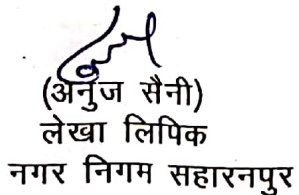 (अनुज सैनी)
लेखा लिपिक
नगर निगम सहारनपुर